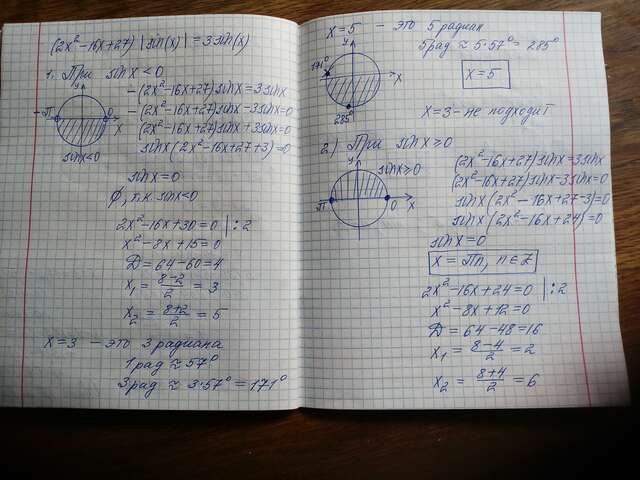 (2x²-16x+27) |sin(x)| = 3sin(x)
1. При sinx < 0
y
-π 0 x
sinx<0
-(2x²-16x+27)sinx=3sinx
-(2x²-16x+27)sinx-3sinx=0
(2x²-16x+27)sinx+3sinx=0
sinx(2x²-16x+27+3)=0
sinx=0
∅, т.к. sinx<0
2x²-16x+30=0 |:2
x²-8x+15=0
D=64-60=4
x₁ = (8-2)/2 = 3
x₂ = (8+2)/2 = 5
x=3 - это 3 радиана
1 рад ≈ 57°
3 рад ≈ 3·57° = 171°
x=5 - это 5 радиан
5 рад ≈ 5·57° = 285°
y
171°
x
285°
x=5
x=3 - не подходит
2) При sinx ≥ 0
y
sinx≥0
π 0 x
(2x²-16x+27)sinx=3sinx
(2x²-16x+27)sinx-3sinx=0
sinx(2x²-16x+27-3)=0
sinx(2x²-16x+24)=0
sinx=0
x = πn, n∈Z
2x²-16x+24=0 |:2
x²-8x+12=0
D=64-48=16
x₁ = (8-4)/2 = 2
x₂ = (8+4)/2 = 6